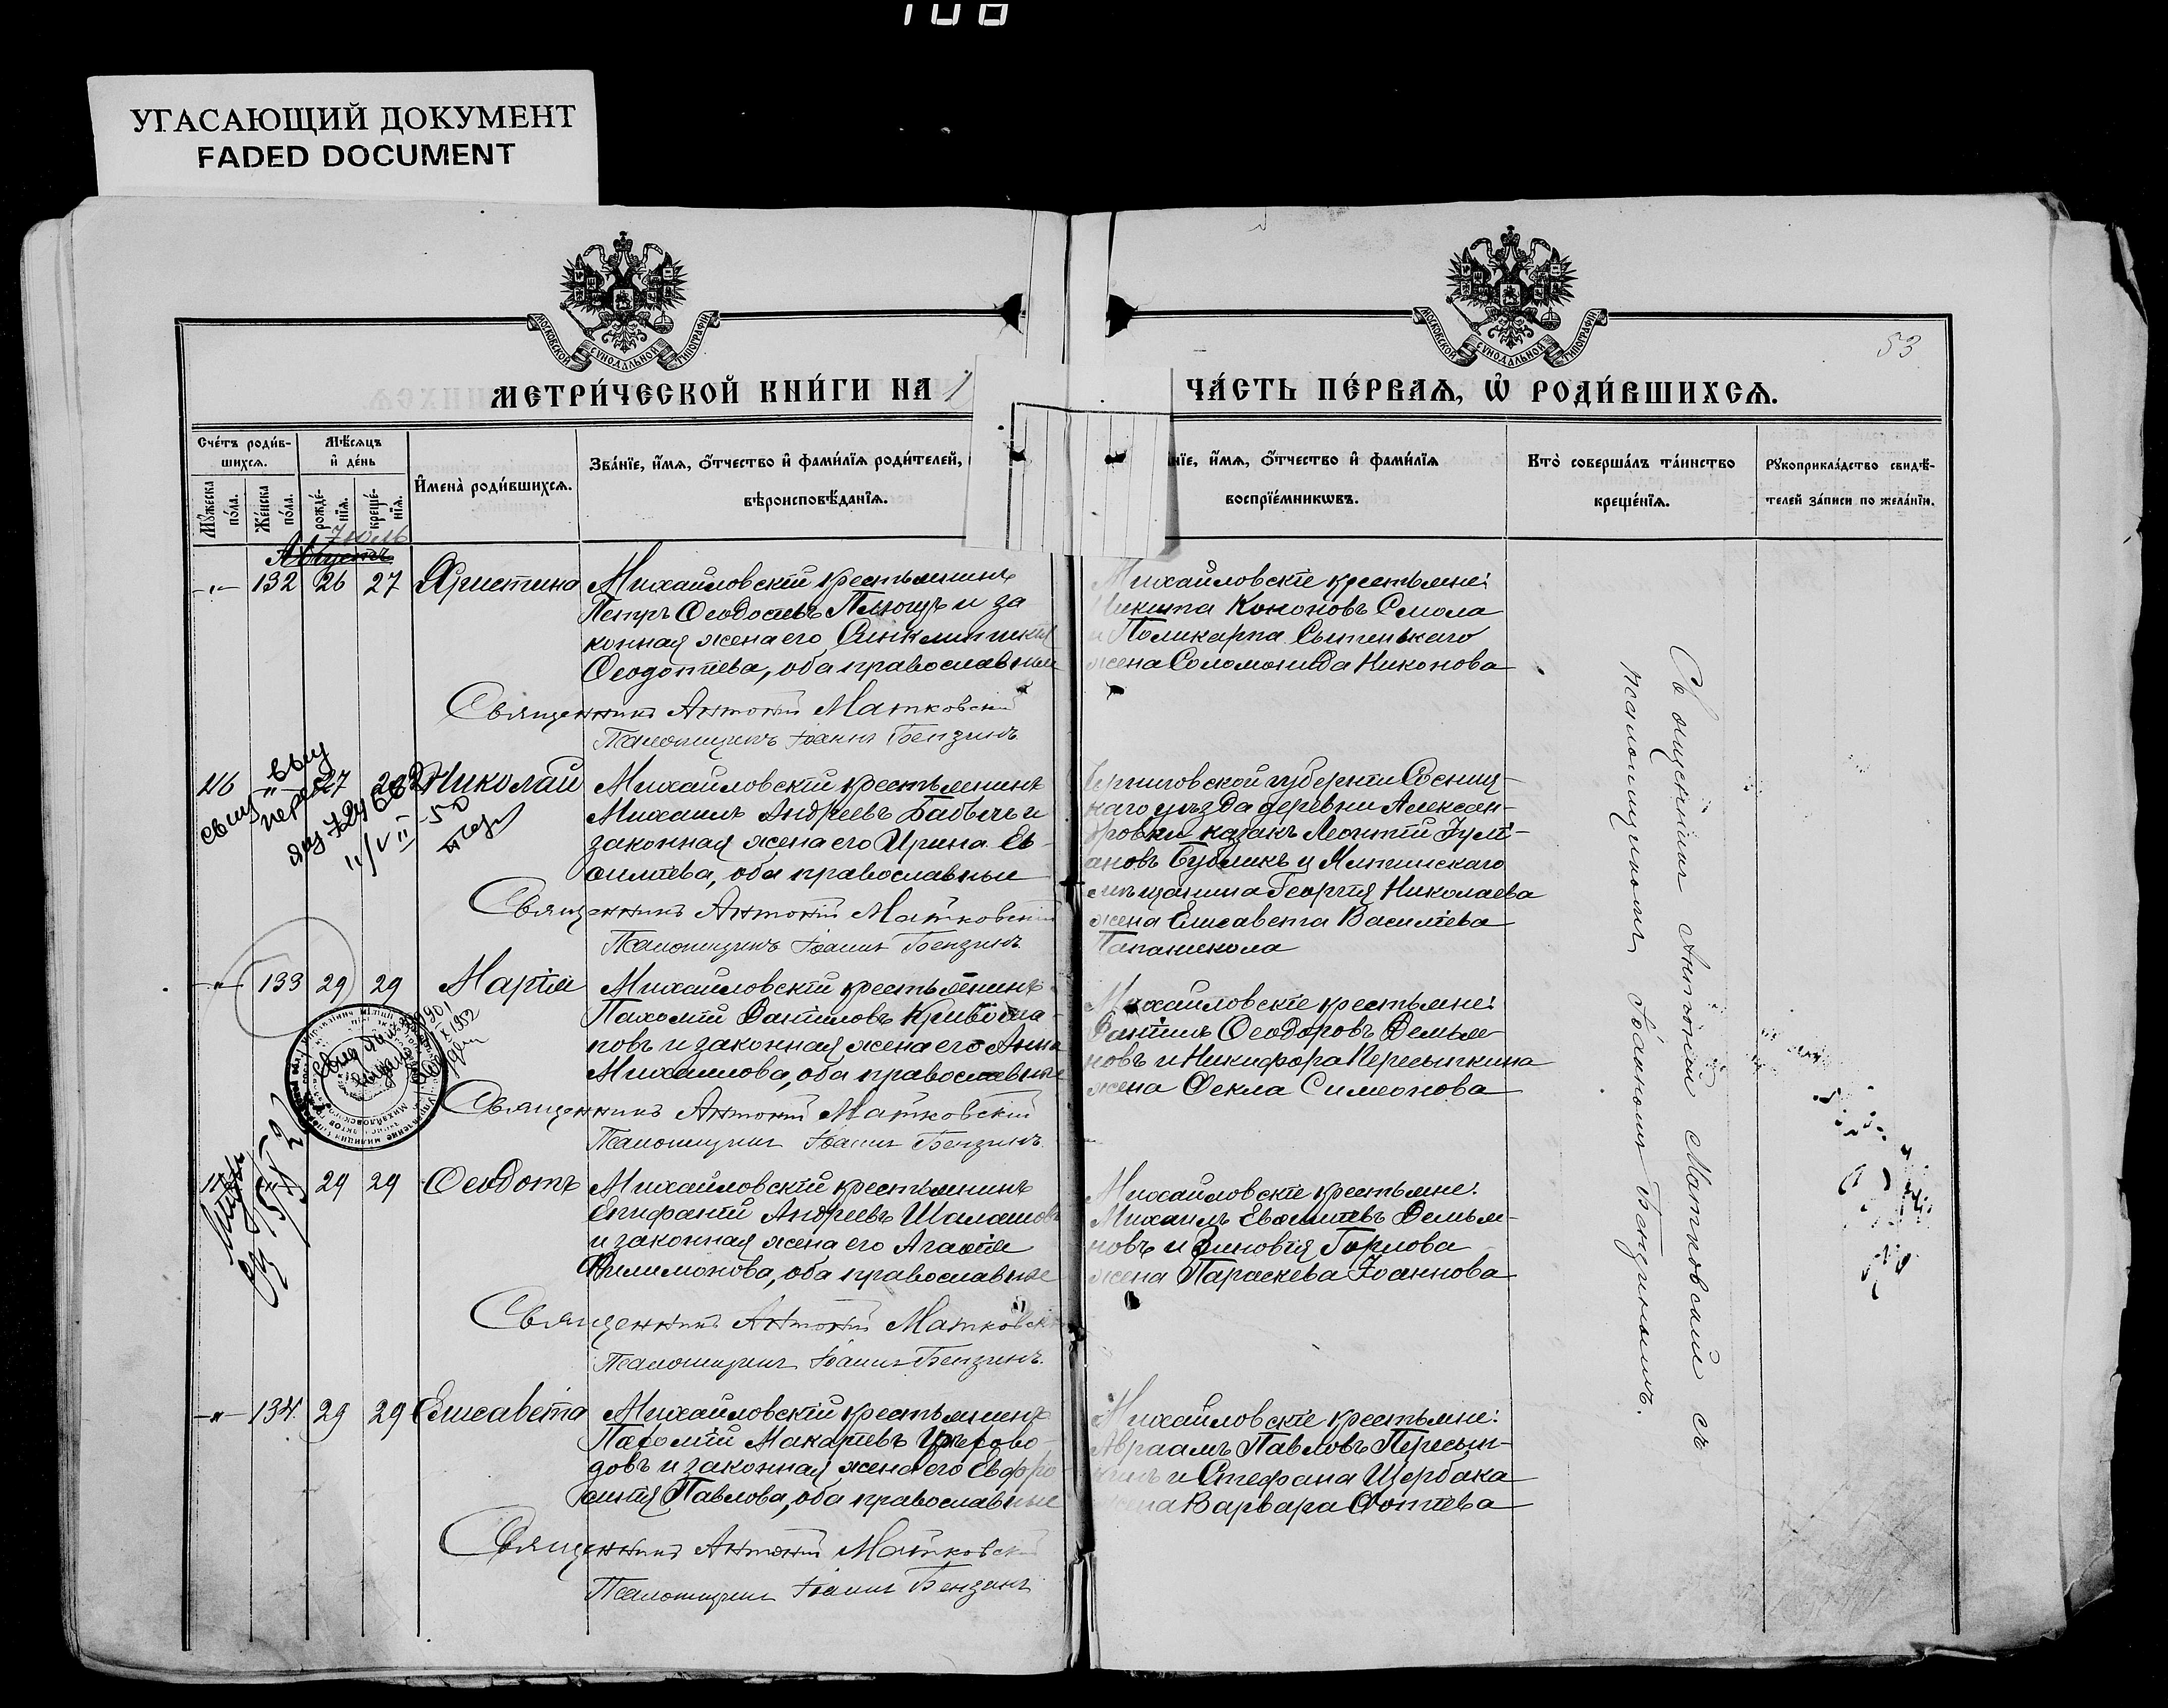 108
УГАСАЮЩИЙ ДОКУМЕНТ
FADED DOCUMENT
МОСКОВСКОЙ СѴНОДАЛЬНОЙ ТИПОГРАФІИ
МОСКОВСКОЙ СѴНОДАЛЬНОЙ ТИПОГРАФІИ
53
МЕТРИ́ЧЕСКОЙ КНИ́ГИ НА 1
ЧА́СТЬ ПЕ́РВАѦ, Ѡ҆ РОДИ́ВШИХСѦ.
Сче́тъ роди́в-
шихсѧ.
Мѣ́сѧцъ
и҆ де́нь
Мꙋ́жеска по́ла.
Же́нска по́ла.
рожде́-нїѧ.
креще́-нїѧ.
И҆мена̀ роди́вшихсѧ.
Зва́нїе, и҆́мѧ, ѻ҆́тчество и҆ фами́лїѧ роди́телей,
вѣроисповѣ́данїѧ.
нїе, и҆́мѧ, ѻ҆́тчество и҆ фами́лїѧ
воспрїе́мникѡвъ.
Кто̀ соверша́лъ та́инство
креще́нїѧ.
Рꙋкоприкла́дство свидѣ́-
телей за́писи по жела́нїю.
Іюль
Августъ
132 26 27 Христина Михайловскій крестьянинъ
Петръ Ѳеодосіевъ Плющъ и за
конная жена его Синклитикія
Ѳеодотіева, оба православные
Священникъ Антоній Матковскій
Псаломщикъ Іоаннъ Бензинъ
Михайловскіе крестьяне:
Никита Кононовъ Смола
и Поликарпа Сытенькаго
жена Соломонида Никонова
116 27 Николай Михайловскій крестьянинъ
Михаилъ Андреевъ Бабычъ и
законная жена его Ирина Ев-
силіева, оба православные
Священникъ Антоній Матковскій
Псаломщикъ Іоаннъ Бензинъ
Черниговской губерніи Сосниц-
каго уѣзда деревни Алексан-
дровки казакъ Леонтій Іулі-
ановъ Бубликъ и
мѣщанина Георгія Николаева
жена Елисавета Василіева
Папаникола
133 29 29 Марія Михайловскій крестьянинъ
Пахомій Даніиловъ
новъ и законная жена его Анна
Михаилова, оба православные
Священникъ Антоній Матковскій
Псаломщикъ Іоаннъ Бензинъ
Михайловскіе крестьяне:
Даніилъ Ѳеодоровъ Демья-
новъ и Никифора Пересыпкина
жена Ѳекла Симеонова
29 29 Ѳеодотъ Михайловскій крестьянинъ
Епифаній Андреевъ Шалашовъ
и законная жена его Агаѳія
Филимонова, оба православные
Священникъ Антоній Матковскій
Псаломщикъ Іоаннъ Бензинъ
Михайловскіе крестьяне:
Михаилъ Евсиліевъ Демья-
новъ и Зиновія Горлова
жена Параскева Іоаннова
134 29 29 Елисавета Михайловскій крестьянинъ
Пахомій Макаріевъ
довъ и законная жена его Евфро
синія Павлова, оба православные
Священникъ Антоній Матковскій
Псаломщикъ Іоаннъ Бензинъ
Михайловскіе крестьяне:
Авраамъ Павловъ Пересып-
кинъ и Стефана Щербака
жена Варвара Фотіева
Священникъ Антоній Матковскій съ
псаломщикомъ Іоанномъ Бензинымъ.